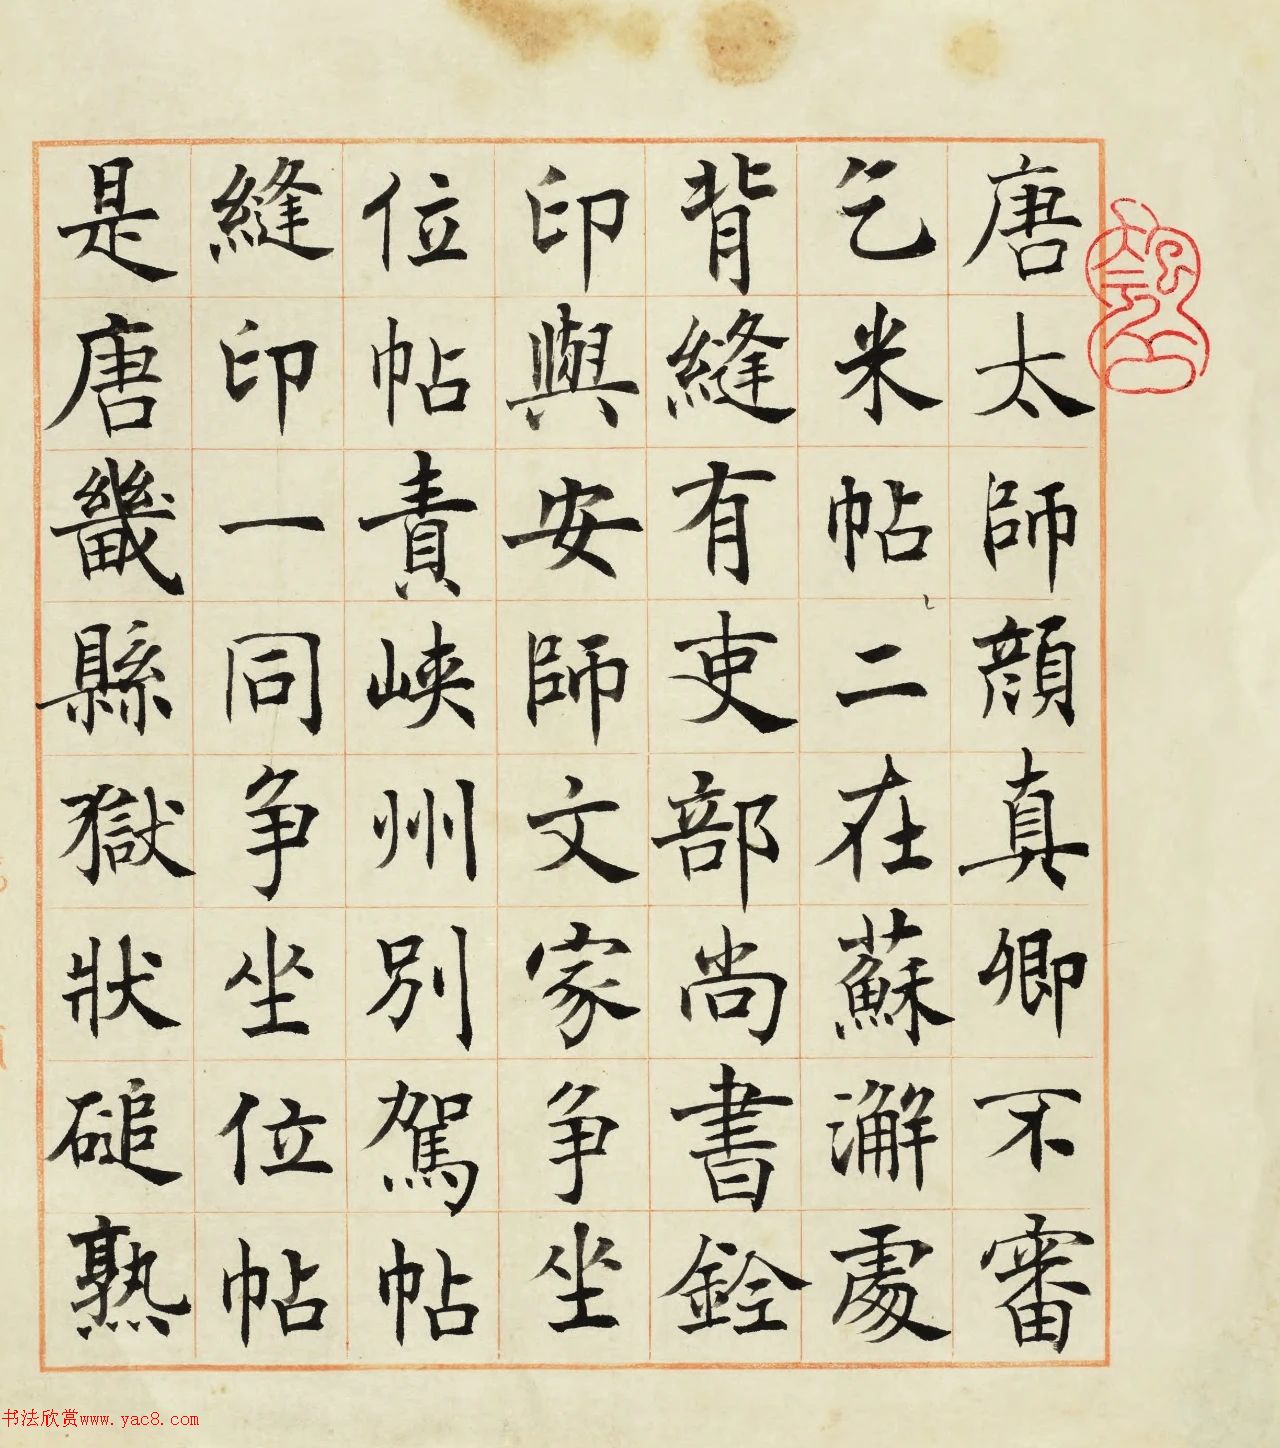 唐太師顔真卿不審
乞米帖二在蘇澥處
背縫有吏部尚書鈐
印與安師文家争坐
位帖責峡州别駕帖
縫印一同争坐位帖
是唐畿縣獄狀磓熟
书法欣赏www.yac8.com